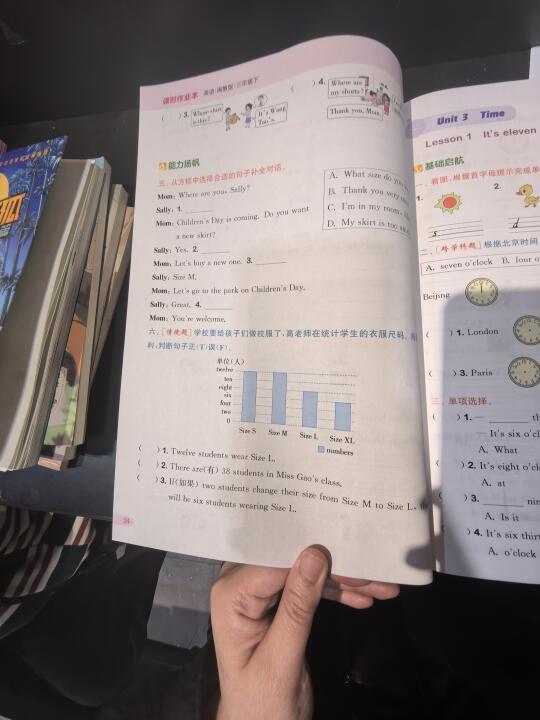 课时作业本 英语(闽教版)三年级下
( ) 3. Whose shirt is this?
It's Wang Tao's.
( ) 4. Where are my shorts?
Thank you, Mom.
能力扬帆
五、从方框中选择合适的句子补全对话。
Mom: Where are you, Sally?
Sally: 1.
Mom: Children's Day is coming. Do you want
a new skirt?
Sally: Yes. 2.
Mom: Let's buy a new one. 3.
Sally: Size M.
Mom: Let's go to the park on Children's Day.
Sally: Great. 4.
Mom: You're welcome.
A. What size do
B. Thank you very
C. I'm in my room.
D. My skirt is too
六、[情境题]学校要给孩子们做校服了,高老师在统计学生的衣服尺码。
料,判断句子正(T)误(F)。
单位(人)
twelve
ten
eight
six
four
two
0
Size S Size M Size L Size XL
numbers
( ) 1. Twelve students wear Size L.
( ) 2. There are(有) 38 students in Miss Gao's class.
( ) 3. If(如果) two students change their size from Size M to Size L,
will be six students wearing Size L.
24
Unit 3 Time
Lesson 1 It's eleven
基础启航
一、看图,根据首字母提示完成单
1.
2.
s
d
二、[跨学科题]根据北京时间
A. seven o'clock B. four o
Beijing
( ) 1. London
( ) 3. Paris
三、单项选择。
( ) 1. —
— It's six o'c
A. What
( ) 2. It's eight o'cl
A. at
( ) 3.
A. Is it
( ) 4. It's six thirt
A. o'clock